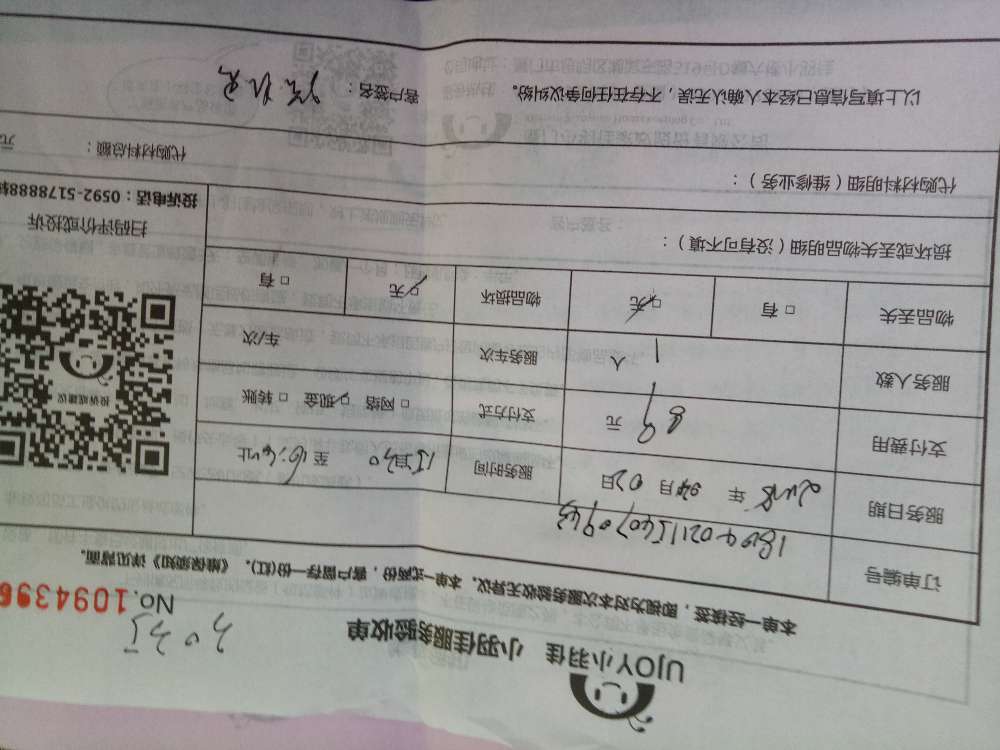 UJOY小羽佳 小羽佳服务验收单
No.1094396
本单一经接签,即视为对本次服务验收无异议。本单一式两份,客户留存一份(红)。《维保须知》详见背面。
订单编号
服务日期 2018 年 04 月 02 日 服务时间 15:30 至 16:40 止
支付费用 89 元 支付方式 □ 网络 □ 现金 □ 转账
服务人数 1 人 服务车次 车/次
物品丢失 □ 有 □ 无 物品损坏 □ 无 □ 有
损坏或丢失物品明细(没有可不填):
代购材料明细(维修业务): 代购材料总额: 元
以上填写信息已经本人确认无误,不存在任何争议纠纷。 客户签名:
投诉或建议
扫码评价或投诉
投诉电话:0592-5178888转